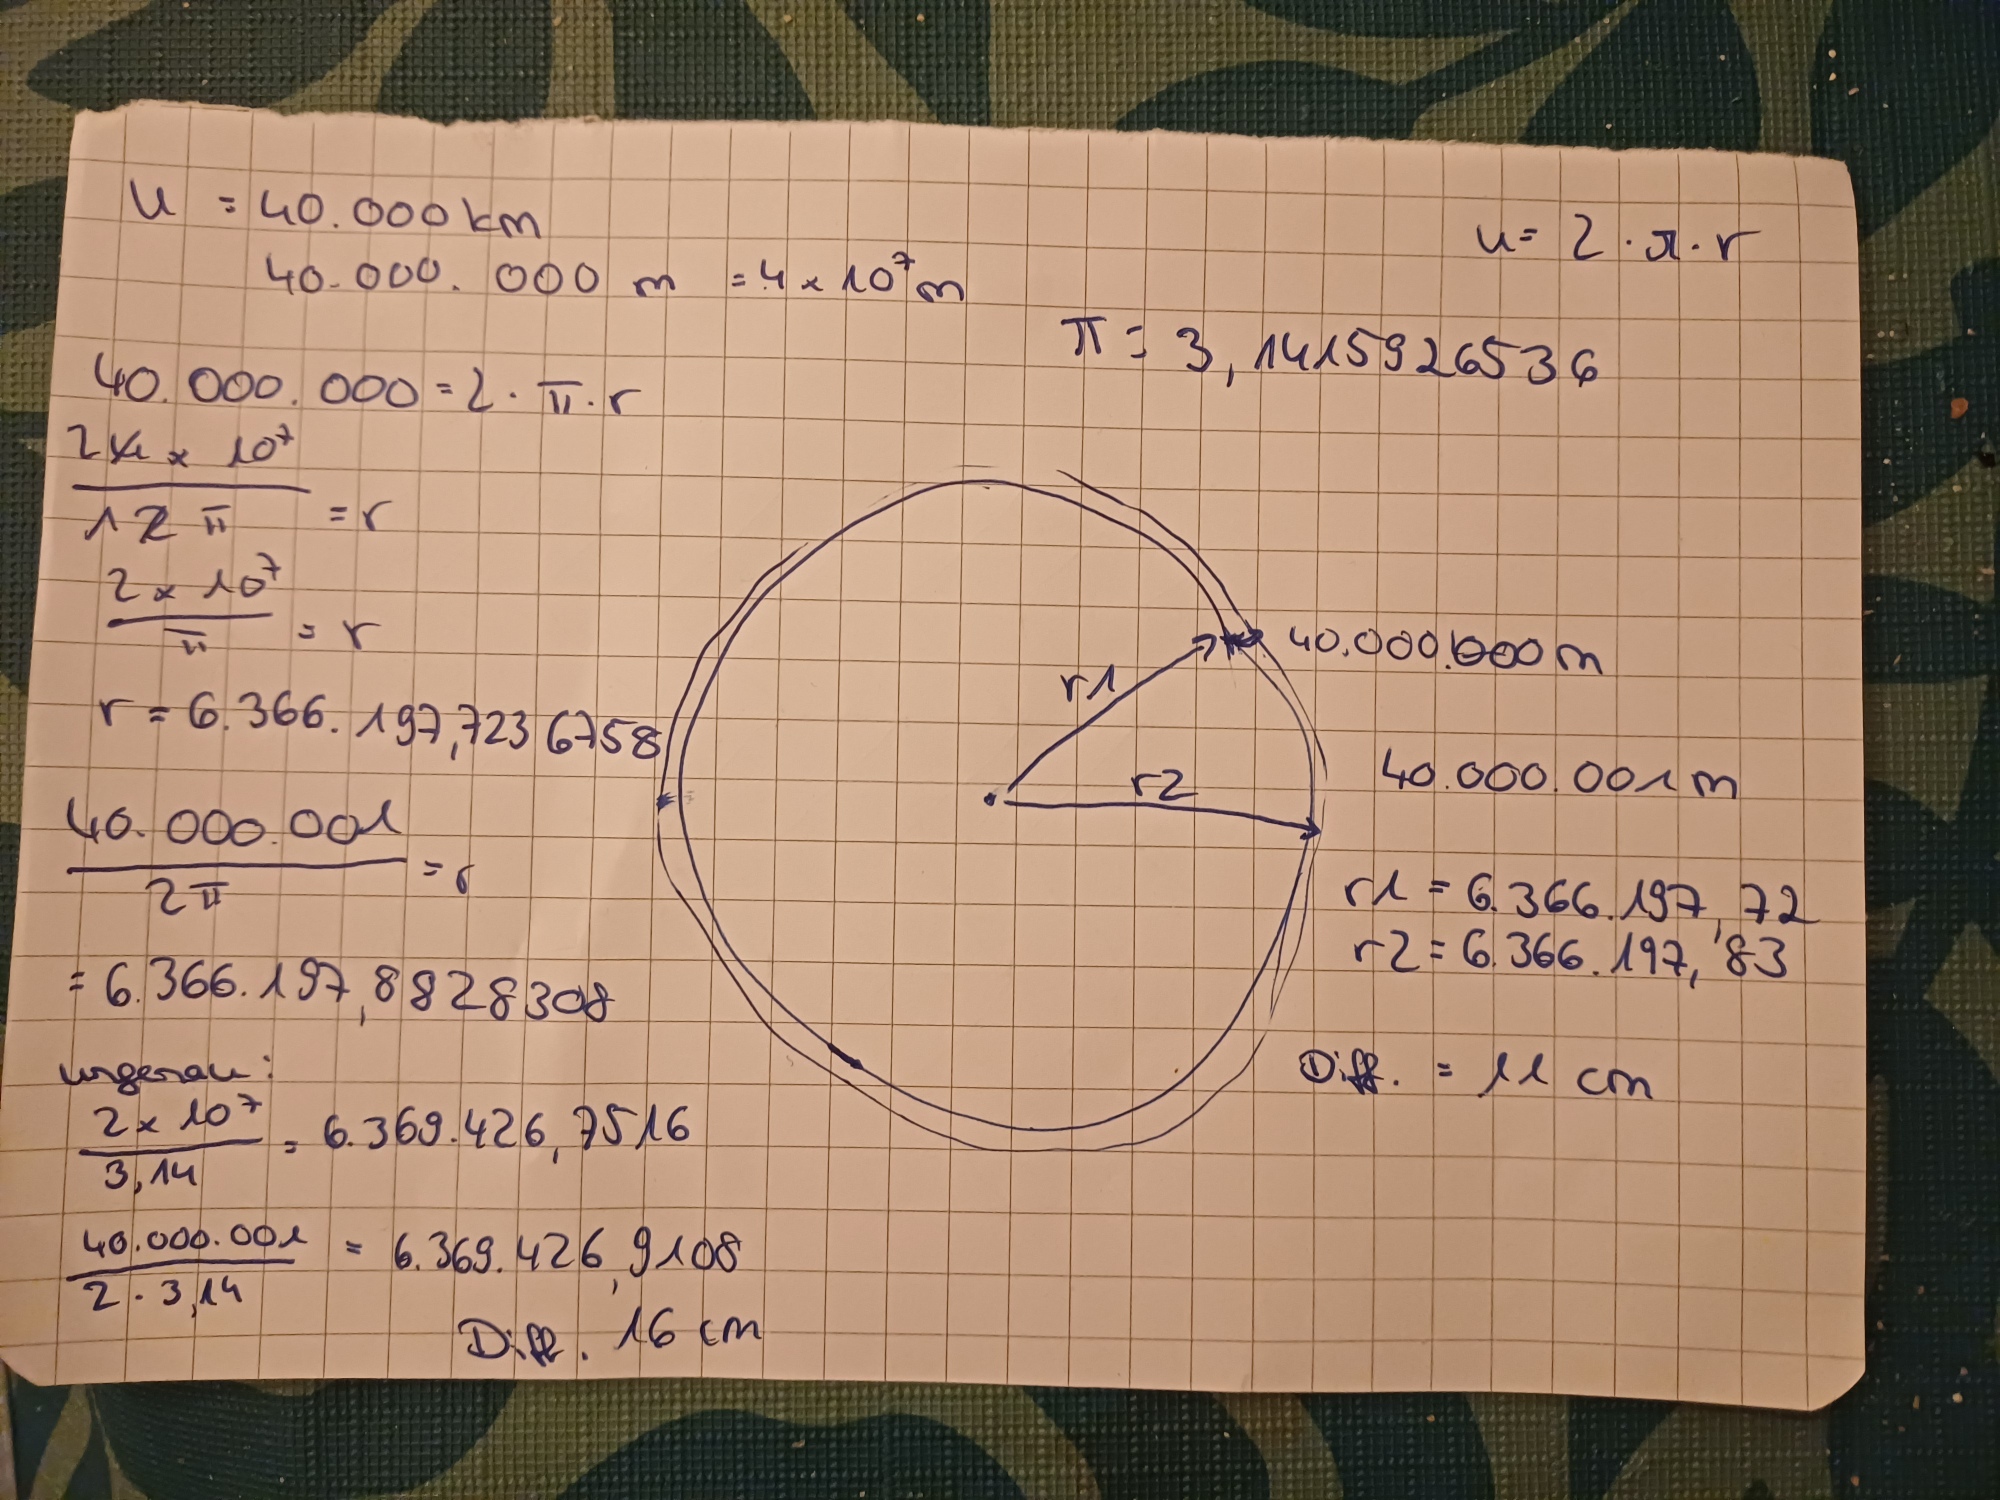 U = 40.000 km
40.000.000 m = 4 x 10⁷ m
u = 2 · π · r
π = 3,1415926536
40.000.000 = 2 · π · r
2 4 x 10⁷
1 2 π = r
2 x 10⁷
π = r
r = 6.366.197,7236758
40.000.001
2 π = r
= 6.366.197,8828308
ungenau:
2 x 10⁷
3,14
= 6.369.426,7516
40.000.001
2 · 3,14
= 6.369.426,9108
Diff. 16 cm
r1
40.000.000 m
r2
40.000.001 m
r1 = 6.366.197,72
r2 = 6.366.197,83
Diff. = 11 cm